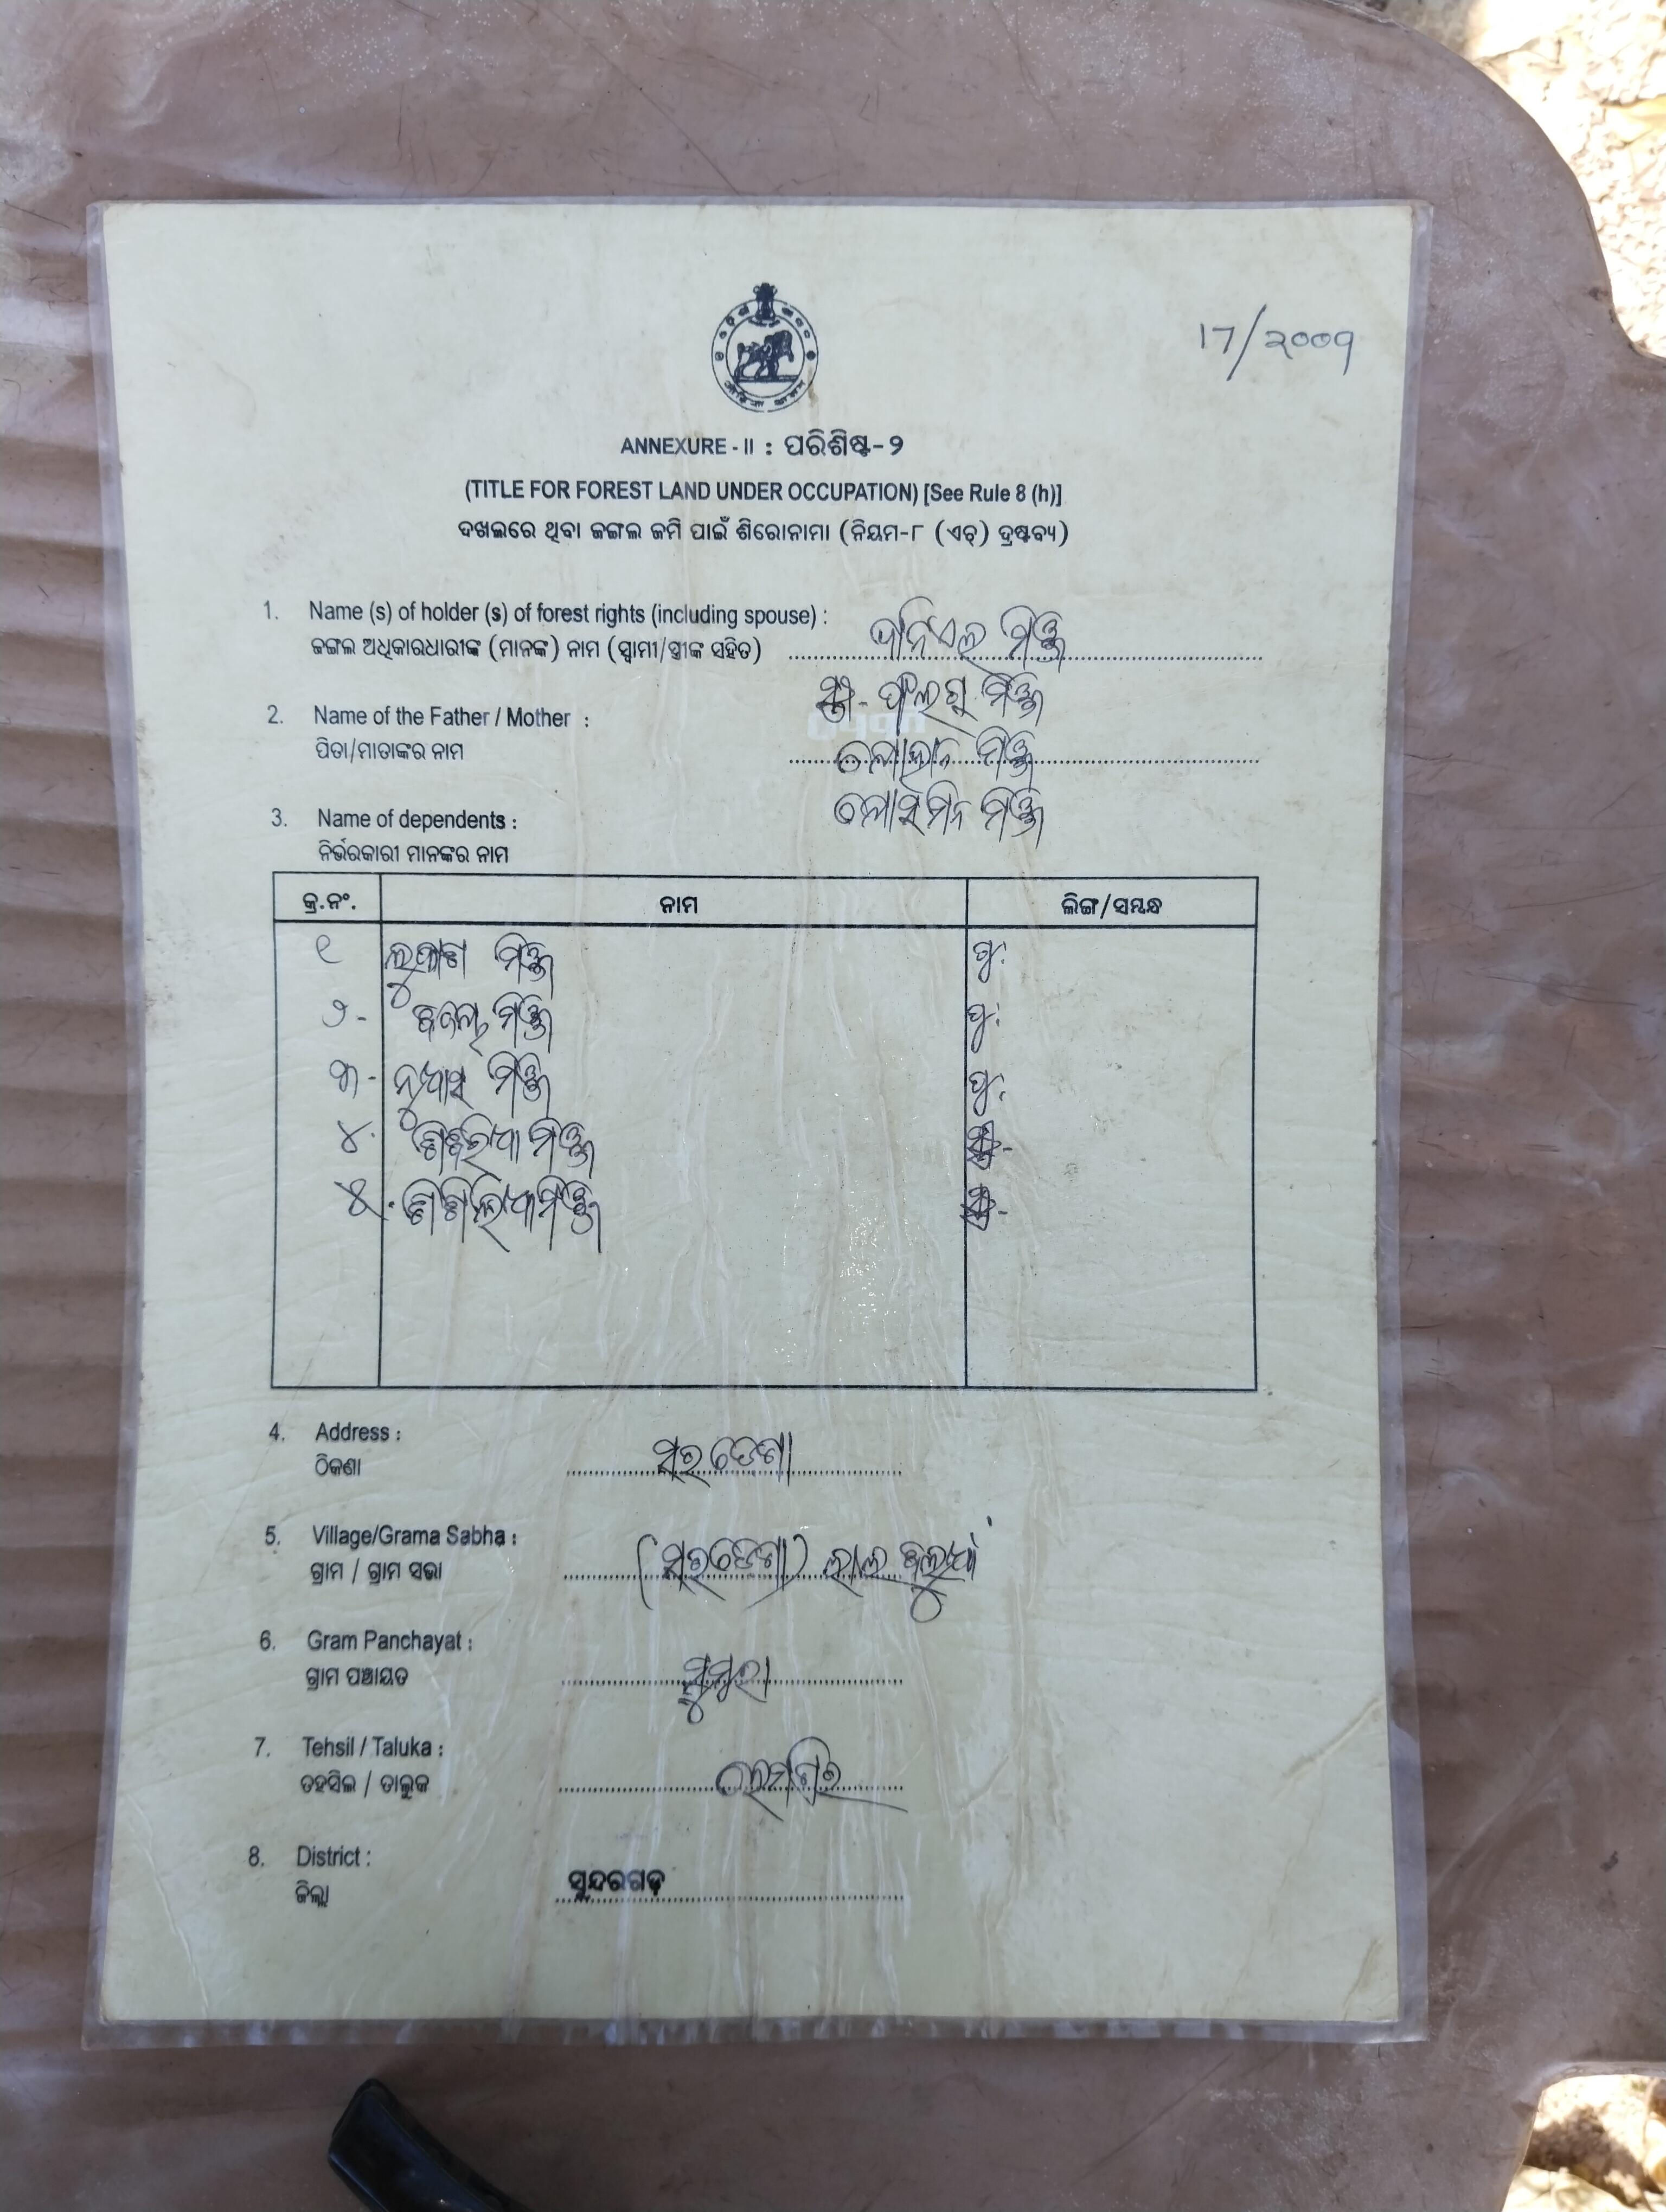 17/2009
ANNEXURE - II : ପରିଶିଷ୍ଟ-୨
(TITLE FOR FOREST LAND UNDER OCCUPATION) [See Rule 8 (h)]
ଦଖଲରେ ଥିବା ଜଙ୍ଗଲ ଜମି ପାଇଁ ଶିରୋନାମା (ନିୟମ-୮ (ଏଚ୍) ଦ୍ରଷ୍ଟବ୍ୟ)
1. Name (s) of holder (s) of forest rights (including spouse) :
ଜଙ୍ଗଲ ଅଧିକାରଧାରୀଙ୍କ (ମାନଙ୍କ) ନାମ (ସ୍ୱାମୀ/ସ୍ତ୍ରୀଙ୍କ ସହିତ) ଦାନିଏଲ ମିଞ୍ଜ
ମିଞ୍ଜ
2. Name of the Father / Mother :
ପିତା/ମାତାଙ୍କର ନାମ ମିଞ୍ଜ
ମିଞ୍ଜ
3. Name of dependents :
ନିର୍ଭରକାରୀ ମାନଙ୍କର ନାମ
କ୍ର.ନଂ. ନାମ ଲିଙ୍ଗ/ସମ୍ବନ୍ଧ
୧ ମିଞ୍ଜ ପୁ:
୨- ମିଞ୍ଜ ପୁ:
୩- ମିଞ୍ଜ ପୁ:
୪- ମିଞ୍ଜ
୫- ମିଞ୍ଜ
4. Address :
ଠିକଣା ସରଡେଗା
5. Village/Grama Sabha :
ଗ୍ରାମ / ଗ୍ରାମ ସଭା (ସରଡେଗା) ଲାଲ
6. Gram Panchayat :
ଗ୍ରାମ ପଞ୍ଚାୟତ
7. Tehsil / Taluka :
ତହସିଲ / ତାଲୁକ ହେମଗିର
8. District :
ଜିଲ୍ଲା ସୁନ୍ଦରଗଡ଼